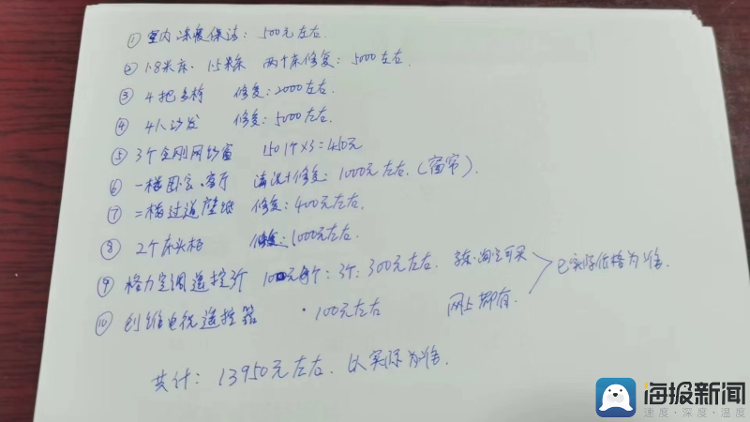 ① 室内深度保洁：500元左右.
② 1.8米床、1.5米床 两个床修复：5000左右.
③ 4把多椅 修复：2000左右.
④ 4人沙发 修复：5000左右.
⑤ 3个金刚网纱窗 150个×3=450元
⑥ 一楼卧室、客厅 清洗+修复：1000元左右.（窗帘）.
⑦ 二楼过道壁纸 修复：400元左右.
⑧ 2个床头柜 修复：1000元左右.
⑨ 格力空调遥控3个 100元/个：3个：300元左右. 京东.淘宝可买
⑩ 创维电视遥控器 100元左右 网上都有.
已实际价格为准.
共计：13950元左右. 以实际为准.
海报新闻
速度·深度·温度